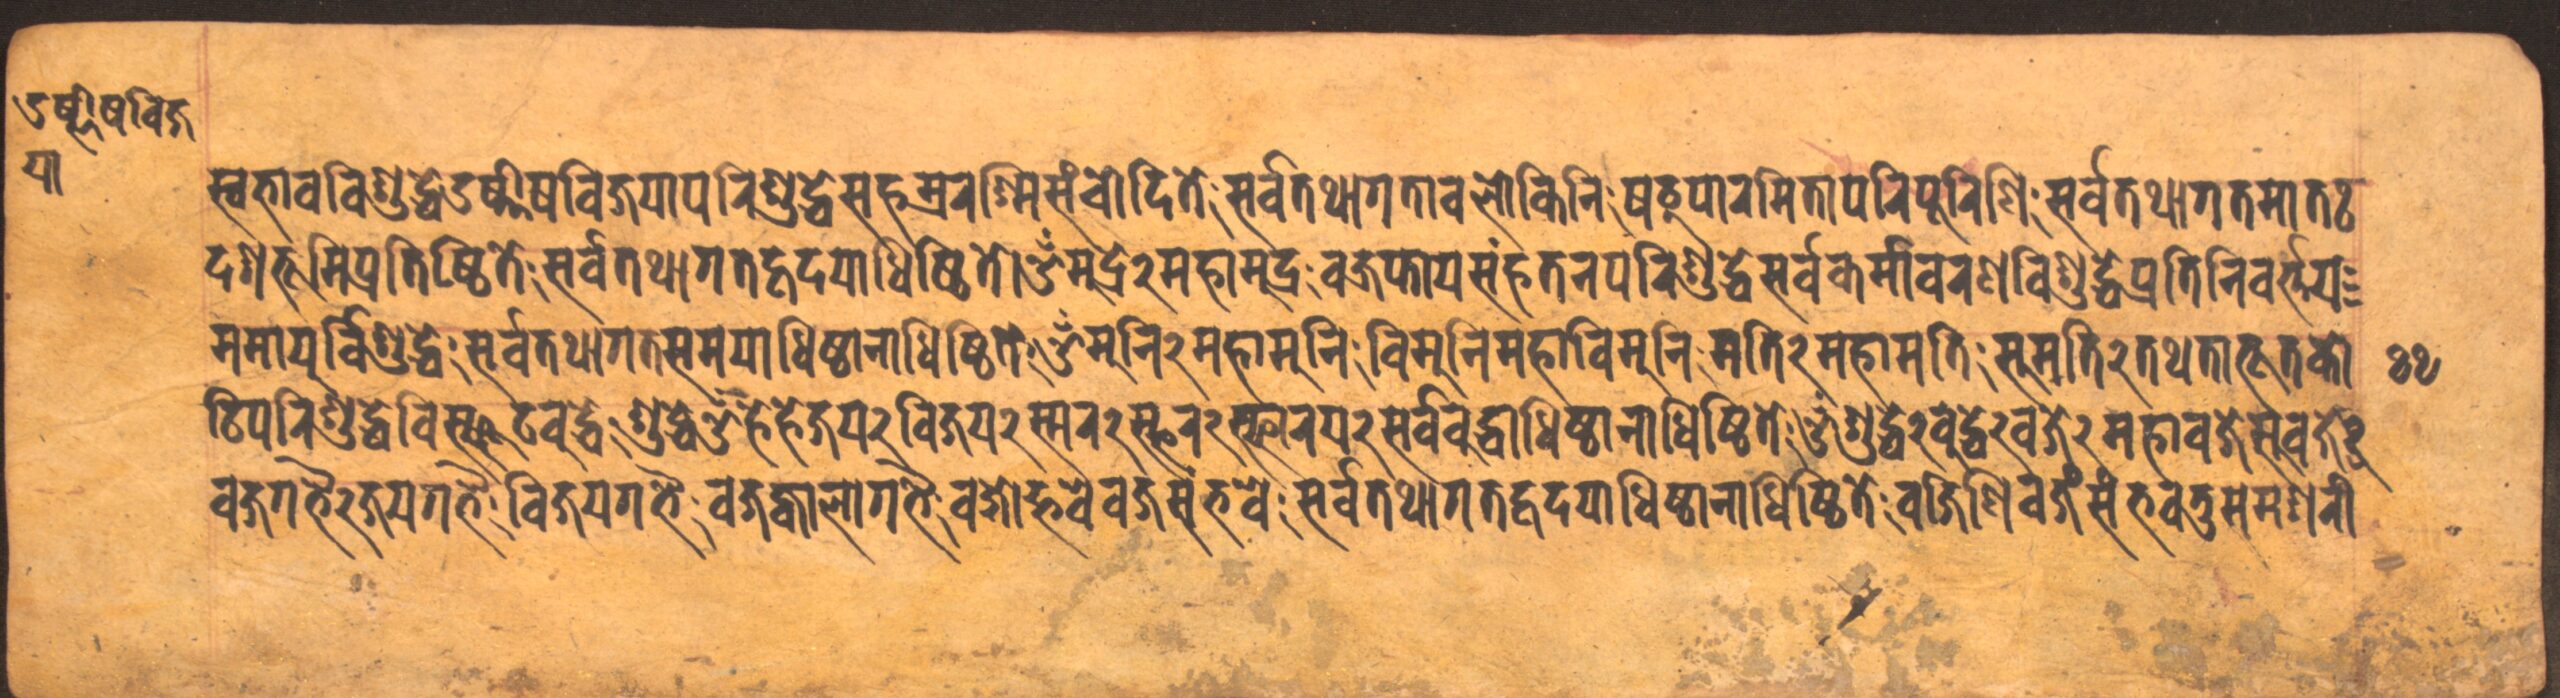 उष्णीषविज
या
स्वभावविशुद्धेउष्णीषविजयापरिशुद्धेसहस्ररश्मिसंचोदिते॰ः सर्वतथागतावलोकिनिः षठ्पारमितापरिपूरिणिः सर्वतथागतमातः
दशभूमिप्रतिष्ठितेः सर्वतथागतहृदयाधिष्ठिते।ॐमुद्रे२महामुद्रः वज्रकायसंहतनपरिशुद्धेसर्वकर्मावरणविशुद्धेप्रतिनिवर्त्तयः
ममायुर्विशुद्धेः सर्वतथागतसमयाधिष्ठानाधिष्ठितेः ॐमुनि२महामुनिः विमुनिमहाविमुनिः मति२महामतिः सुमति२तथताभूतको
१९
टिपरिशुद्धेविस्फुटवुद्धेः शुद्धेॐहेहेजय२विजय२स्मर२स्फुर२स्फारय२सर्ववुद्धाधिष्ठानाधिष्ठितेः ॐशुद्धे२वुद्धे२वज्रे२महावज्रेसुवज्रे२
वज्रगर्भे२जयगर्भेः विजयगर्भेः वज्रज्वालागर्भेः वज्रोद्भवेवज्रसंभवेः सर्वतथागतहृदयाधिष्ठानाधिष्ठितेः वज्रिणिवज्रंसंभवतुसमशरी